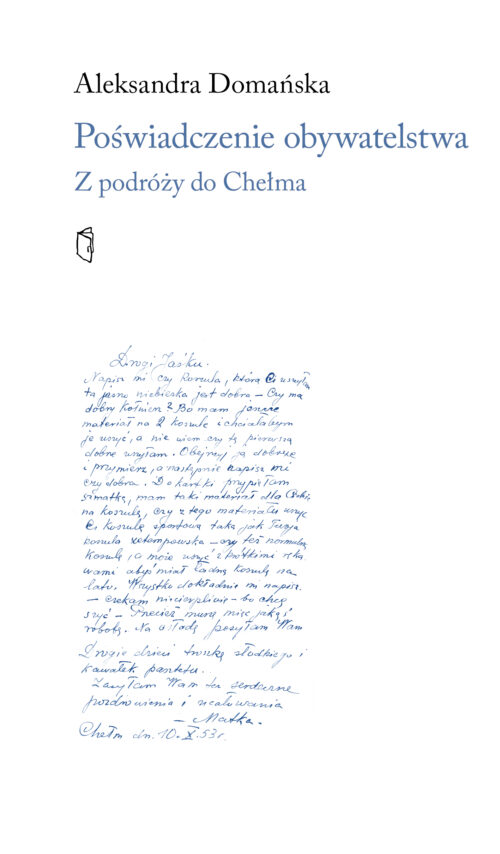 Aleksandra Domańska
Poświadczenie obywatelstwa
Z podróży do Chełma
Drogi Jaśku.
Napisz mi czy koszula, którą Ci uszyłam
ta jasno niebieska jest dobra – Czy ma
dobry kołnierz? Bo mam jeszcze
materiał na 2 koszule i chciałabym
je uszyć, a nie wiem czy tę pierwszą
dobrze uszyłam. Obejrzyj ją dobrze
i przymierz, a następnie napisz mi
czy dobra. Do kartki przypięłam
szmatkę, mam taki materiał dla Ciebie
na koszulę, czy z tego materiału uszyć
Ci koszulę sportową taką jak Twoja
koszula – czy też normalną
koszulę, a może uszyć z krótkimi ręka
wami abyś miał ładną koszulę na
lato. Wszystko dokładnie mi napisz.
– czekam niecierpliwie – bo chcę
szyć – Przecież muszę mieć jakąś
robotę. Na osłodę posyłam Wam
Drogie dzieci troszkę słodkiego i
kawałek
Zasyłam Wam serdeczne
pozdrowienia i ucałowania
– Matka.
Chełm dn. 10.X.53r.